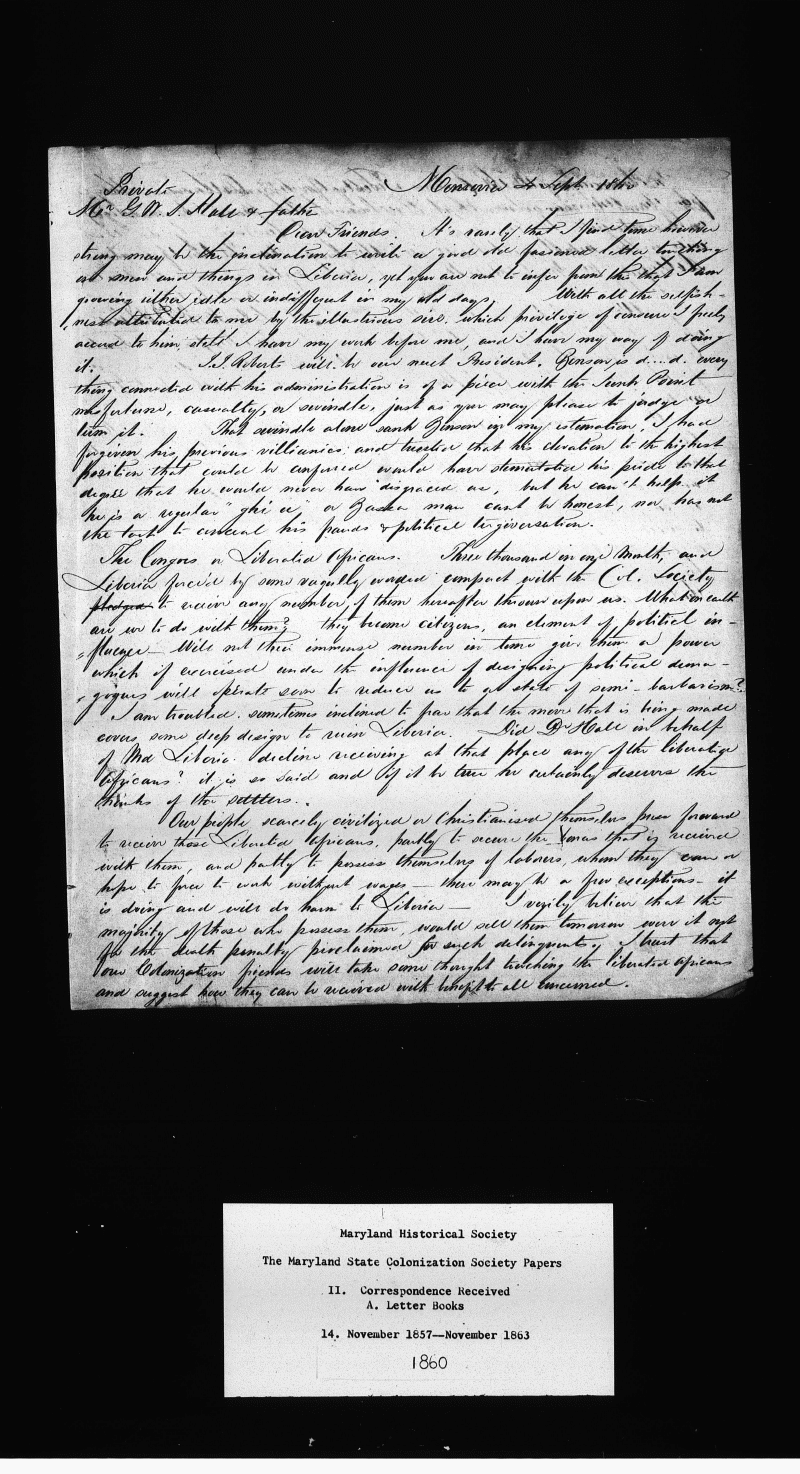 Private Monrovia 4 Sept. 1860
Mr. G. W. S. Hall & father
Dear Friends. It's rarely that I find time however
strong may be the inclination to write a good old fasioned letter touching
on men and things in Liberia, yet you are not to infer from the that I am
growing either idle or indifferent in my old days. With all the selfish-
ness attributed to me by the illustrious sire, which privilege of censure I freely
accord to him, still I have my work before me, and I have my way of doing
it. J. J. Roberts will be our next President. Benson is d...d. every
thing connected with his administration is of a piece with the Junk Point
misfortune, casualty, or swindle, just as you may please to judge or
term it. That swindle alone sank Benson in my estimation, I had
forgiven his previous villianies: and trusted that his elevation to the highest
position that could be confered would have his pride to that
degree that he would never have disgraced us, but he can't help it
he is a regular a Bassa man cant be honest, nor has not
the tact to conceal his frauds & political tergiversation.
The Congoes or Liberated Africans. Three thousand in one month, and
Liberia forced by some vaguelly worded compact with the Col. Society
pledged to receive any number of them hereafter thrown upon us. What on earth
are we to do with them? they become citizens, an element of political in-
"fluence- Will not their immense number in time give them a power
which if exercised under the influence of designing political dema-
"gogues will operate soon to reduce us to a state of semi-barbarism?
I am troubled, sometimes inclined to fear that the move that is being made
covers some deep design to ruin Liberia. Did Dr Hall in behalf
of Md Liberia decline receiving at that place any of the liberated
Africans? it is so said and if it be true he certainly deserves the
thanks of the settlers.
Our people scarcely civilized or Christianised themselves press forward
to receive those Liberated Africans, partly to secure the that is received
with them, and partly to possess themselves of laborers, whom they can or
hope to force to work without wages - there may be a few exceptions - it
is doing and will do harm to Liberia - I verily believe that the
majority of those who possess them, would sell them tomorrow were it not
for the death penalty proclaimed for such delinquency. I trust that
our Colonization friends will take some thought touching the liberated Africans
and suggest how they can be received with benefit to all concerned.
Maryland Historical Society
The Maryland State Colonization Society Papers
II. Correspondence Received
A. Letter Books
14. November 1857--November 1863
1860